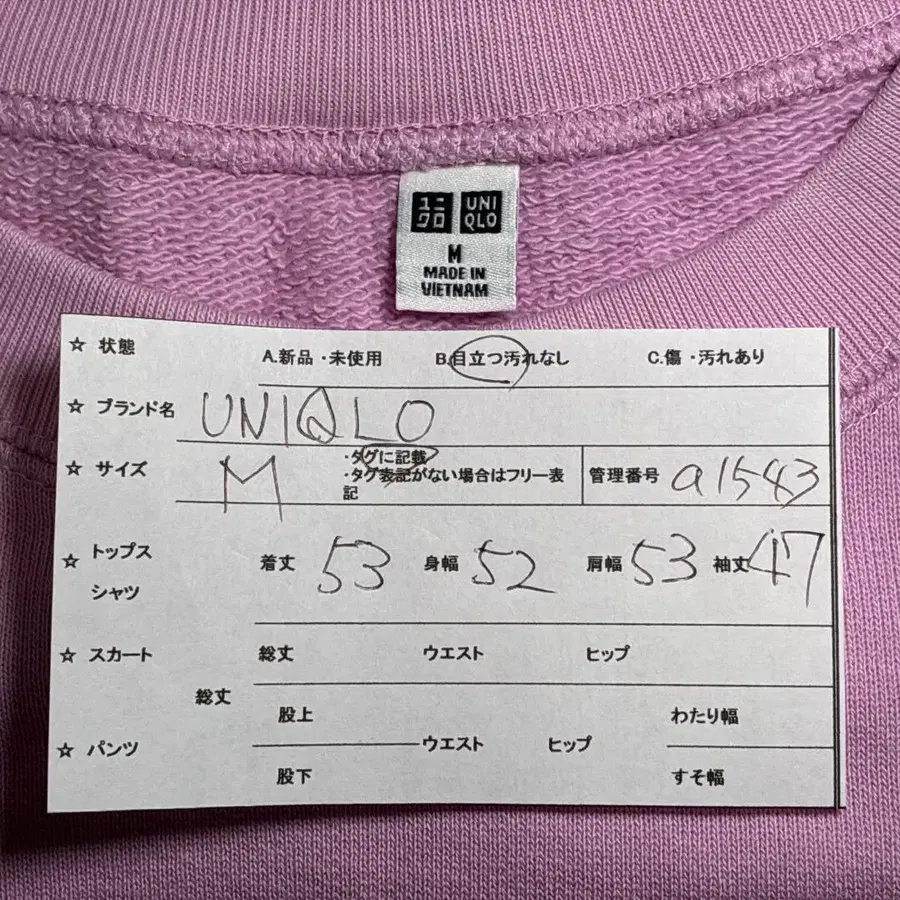 ユニ UNI
クロ QLO
M
MADE IN
VIETNAM
☆ 状態 A.新品・未使用 B.目立つ汚れなし C.傷・汚れあり
☆ ブランド名 UNIQLO
☆ サイズ M ・タグに記載
・タグ表記がない場合はフリー表
記
管理番号 a1543
☆ トップス
シャツ
着丈 53 身幅 52 肩幅 53 袖丈 47
☆ スカート 総丈 ウエスト ヒップ
総丈
股上 わたり幅
☆ パンツ ウエスト ヒップ
股下 すそ幅